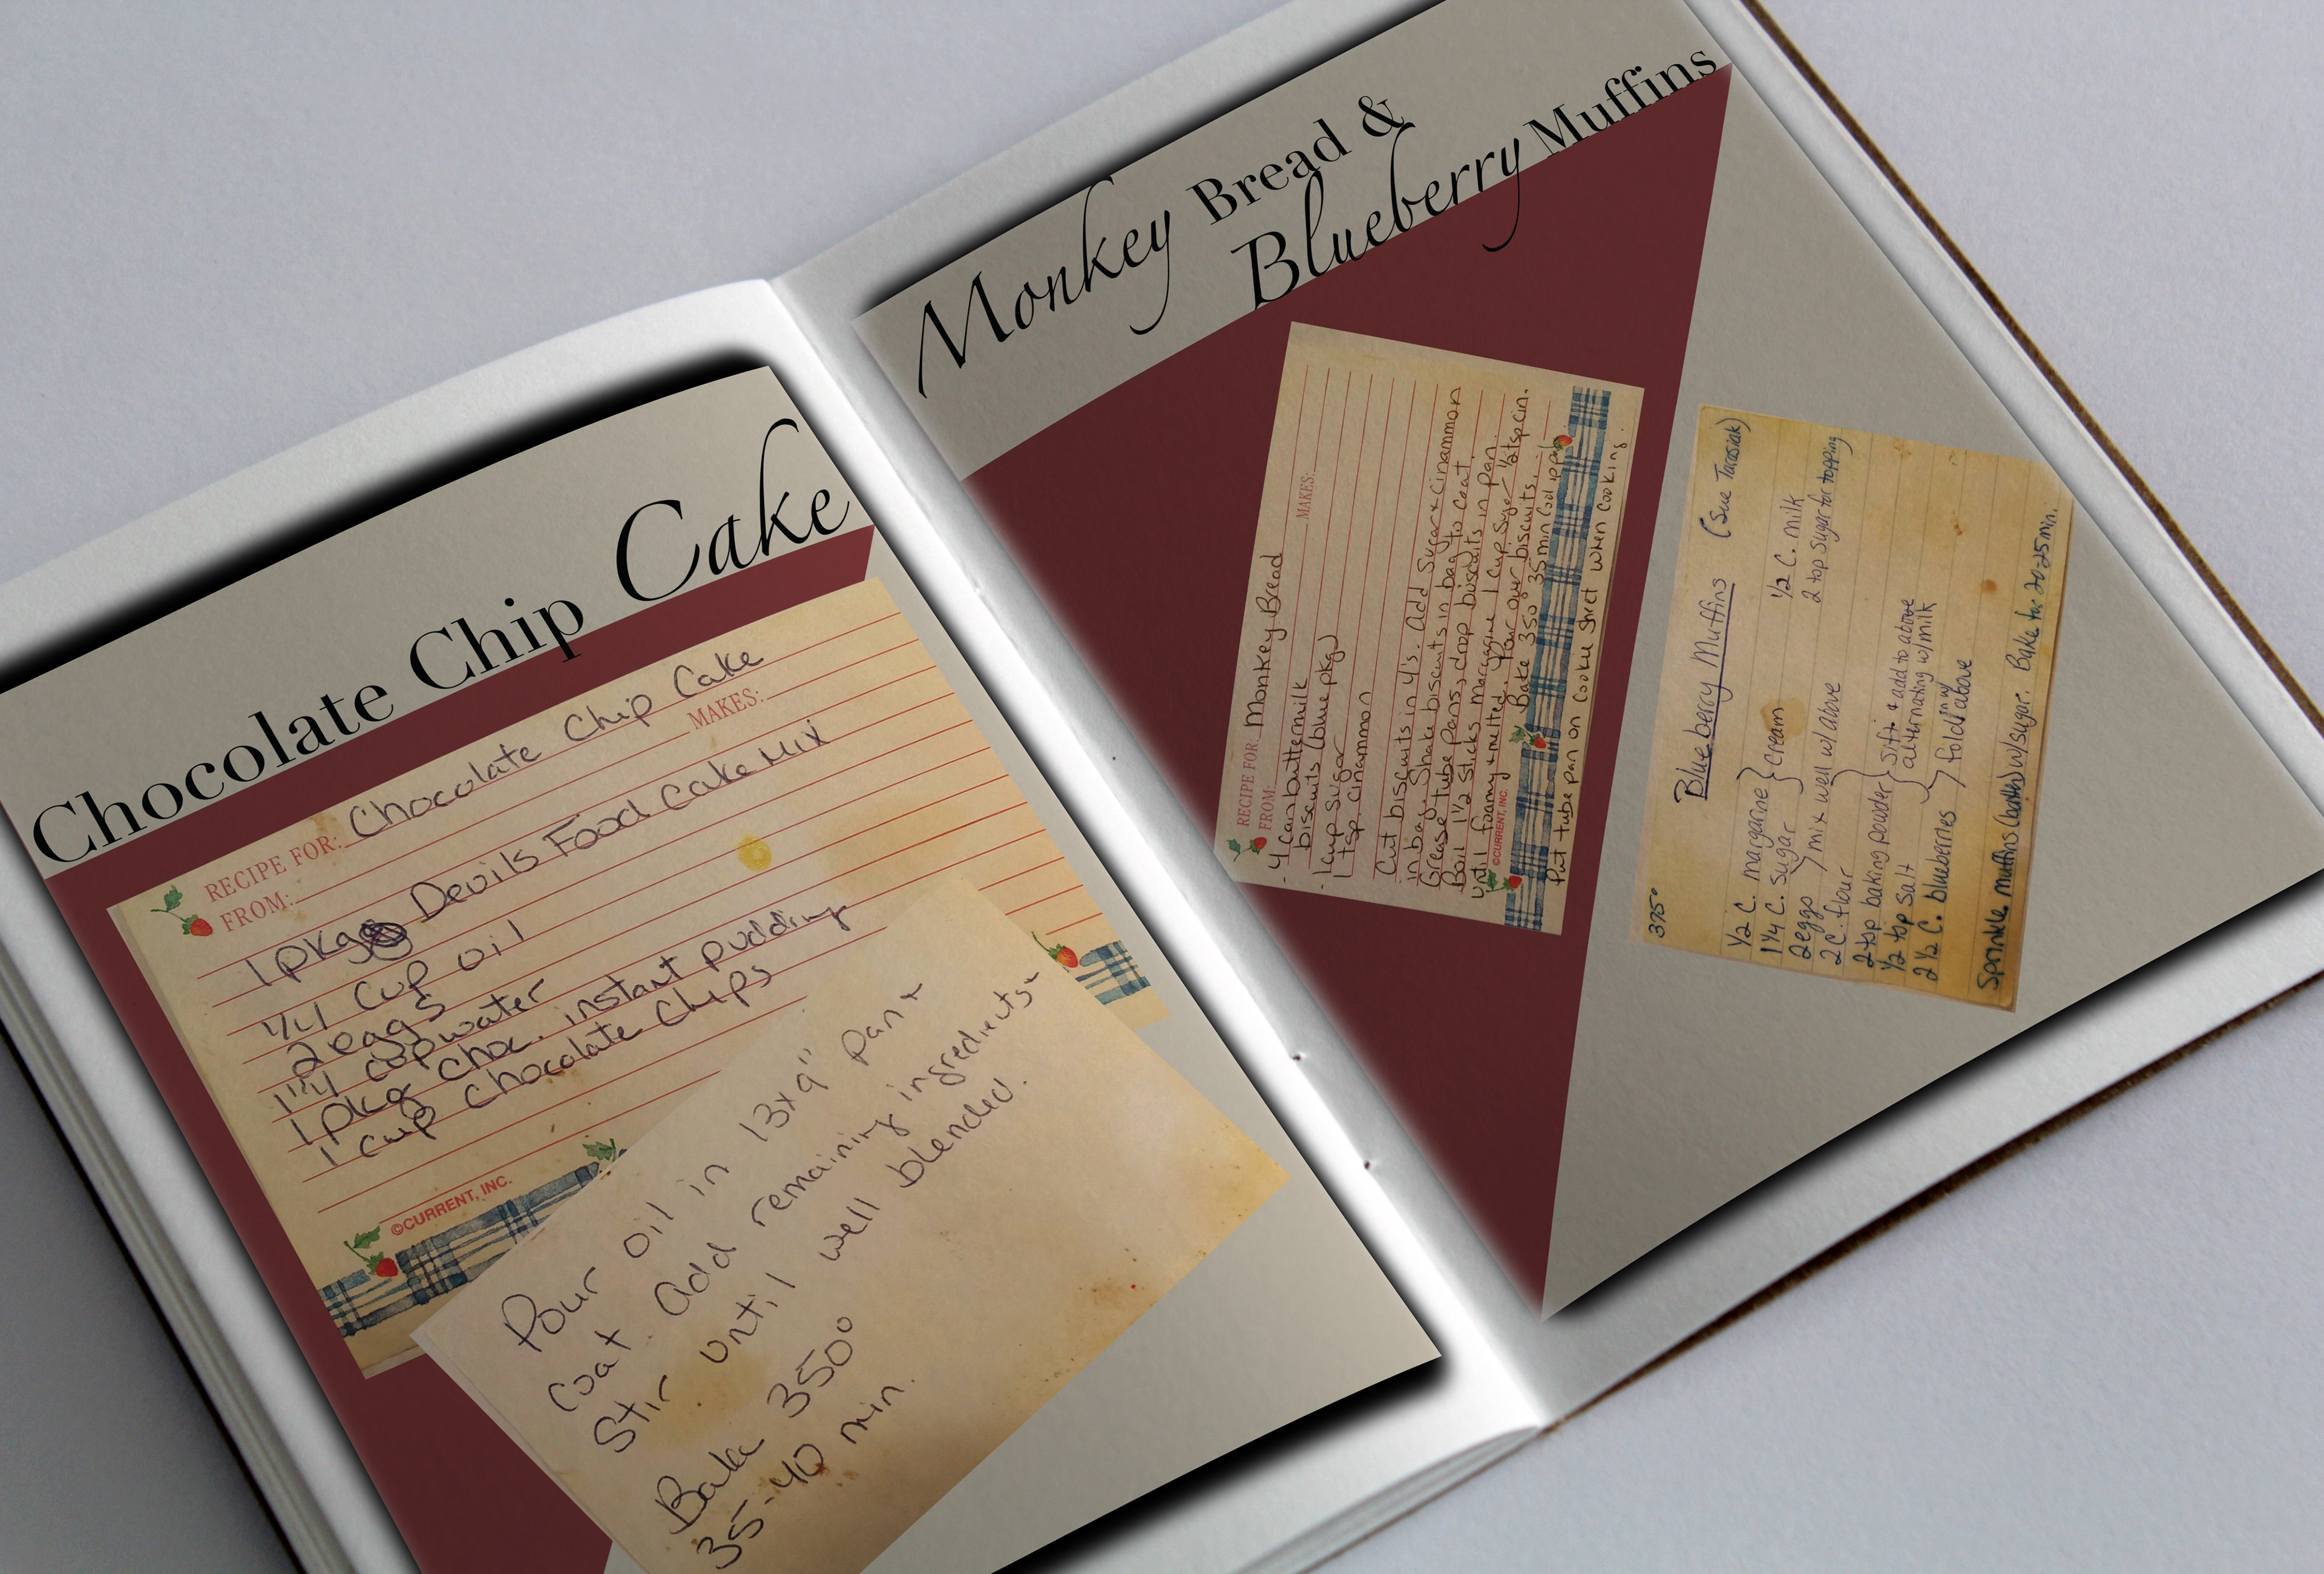 Chocolate Chip Cake
RECIPE FOR: Chocolate Chip Cake
FROM: MAKES:
1 pkg Devils Food Cake Mix
1/4 cup oil
2 eggs
1 1/4 cup water
1 pkg choc. instant pudding
1 cup chocolate chips
©CURRENT, INC.
Pour oil in 13x9" pan +
coat. Add remaining ingredients +
Stir until well blended.
Bake 350°
35-40 min.
Monkey Bread &
Blueberry Muffins
RECIPE FOR: Monkey Bread
FROM: MAKES:
- 4 can buttermilk
biscuits (blue pkg)
- 1 cup sugar
1 tsp cinammon
Cut biscuits in 4's. Add Sugar + Cinammon
in bag. Shake biscuits in bag to coat.
Grease tube pans, drop biscuits in pan.
Boil 1 1/2 sticks margarine 1 cup Sugar 1/2 tsp cin.
until foamy + melted. Pour over biscuits.
©CURRENT, INC. Bake 350° 35 min Cool
Put tube pan on cookie sheet when cooking.
375° Blueberry Muffins (Sue Tarasiak)
1/2 C. margarine } cream 1/2 C. milk
1 1/4 C. sugar 2 tsp sugar for topping
2 eggs } mix well w/above
2 C. flour
2 tsp baking powder } sift + add to above
1/2 tsp salt alternating w/milk
2 1/2 C. blueberries } fold in w/ above
Sprinkle muffins (batter) w/sugar. Bake for 20-25 min.